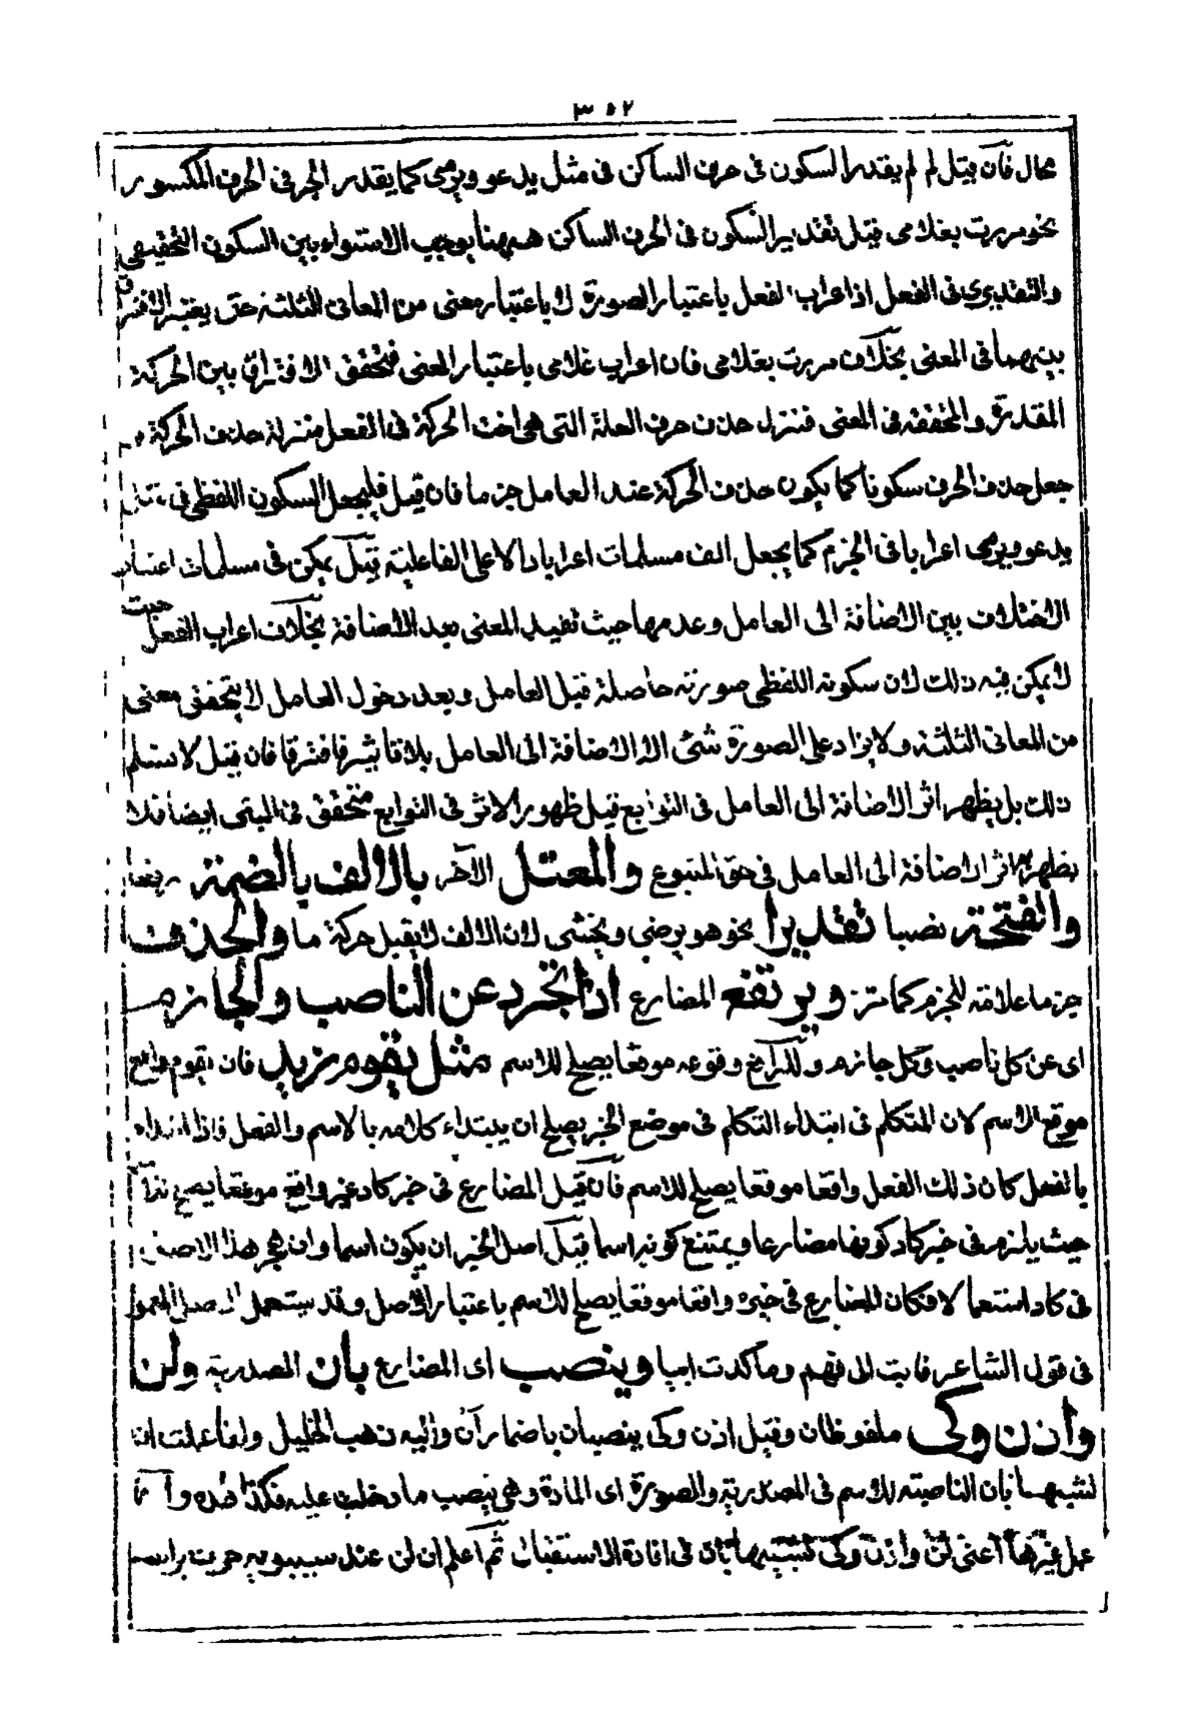 ٣٥٢
محال فان قيل لم لم يقدر السكون فى حرف الساكن فى مثل يدعو ويرمى كما يقدر الجر فى الحرف المكسور
نحو مررت بغلامى قيل تقدير السكون فى الحرف الساكن ههنا يوجب الاستواء بين السكون التحقيقى
والتقديرى فى الفعل اذ اعراب الفعل باعتبار الصورة لا باعتبار معنى من المعانى الثلثة حتى يعتبر الافتراق
بينهما فى المعنى بخلاف مررت بغلامى فان اعراب غلامى باعتبار المعنى فتحقق الافتراق بين الحركة
المقدرة والمحققة فى المعنى فنزل حذف حرف العلة التى هى اخت الحركة فى الفعل منزلة حذف الحركة
جعل حذف الحرف سكونا كما يكون حذف الحركة عند العامل جزما فان قيل فليجعل السكون اللفظى فى
يدعو ويرمى اعرابا فى الجزم كما يجعل الف مسلمات اعرابا دالا على الفاعلية قيل يمكن فى مسلمات اعتبار
الاختلاف بين الاضافة الى العامل وعدمها حيث تفيد المعنى بعد الاضافة بخلاف اعراب الفعل حيث
لا يمكن فيه ذلك لان سكونه اللفظى صورته حاصلة قبل العامل وبعد دخول العامل لا يتحقق معنى
من المعانى الثلثة ولا يزاد على الصورة شئ الا الاضافة الى العامل بلا تاثير فافترقا فان قيل لا نسلم
ذلك بل يظهر اثر الاضافة الى العامل فى التوابع قيل ظهور الاثر فى التوابع متحقق فى المبنى ايضا فلا
يظهر اثر الاضافة الى العامل فى حق المتبوع والمعتل الآخر بالالف بالضمة رفعا
والفتحة نصبا تقديرا نحو هو يرضى ويخشى لان الالف لا يقبل حركة ما والحذف
جزما علامة للجزم كما مر ويرتفع المضارع اذا تجرد عن الناصب والجازم
اى عن كل ناصب وكل جازم والرافع وقوعه موقعا يصلح للاسم مثل يقوم زيد فان يقوم واقع
موقع الاسم لان المتكلم فى ابتداء التكلم فى موضع الخبر يصلح ان يبتداء كلامه بالاسم والفعل فاذا ابتداء
بالفعل كان ذلك الفعل واقعا موقعا يصلح للاسم فان قيل المضارع فى خبر كاد غير واقع موقعا يصح
حيث يلزم فى خبر كاد كونها مضارعا ويمتنع كونه اسما قيل اصل الخبر ان يكون اسما وان هجر هذا الاصل
فى كاد استعمالا فكان المضارع فى خبره واقعا موقعا يصلح للاسم باعتبار الاصل وقد يستعمل الاصل المهجور
فى قول الشاعر فابت الى فهم وما كدت ايبا وينصب اى المضارع بان المصدرية ولن
واذن وكى ملفوظان وقيل اذن وكى ينصبان باضمار ان واليه ذهب الخليل وانما عملت ان
لشبهها بان الناصبة للاسم فى المصدرية والصورة اى المادة وهى ينصب ما دخلت عليه فكذا هذه
عمل غيرها اعنى لن واذن وكى لشبهها بان فى افادة الاستقبال ثم اعلم ان لن عند سيبويه حرف براسه